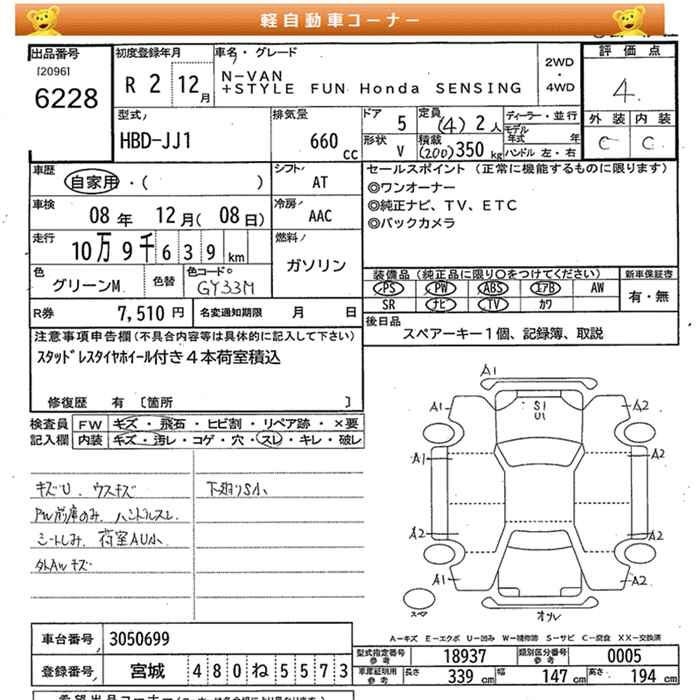 軽自動車コーナー
出品番号
[2096]
6228
初度登録年月
R 2 12月
車名・グレード
N-VAN
+STYLE FUN Honda SENSING
2WD
・
4WD
評価点
4
外装 内装
C C
型式
HBD-JJ1
排気量
660 cc
ドア
5
形状
V
定員
(4) 2人
積載
(200) 350 kg
ディーラー・並行
モデル年式 年
ハンドル 左・右
車歴
自家用・( )
シフト
AT
車検
08年 12月(08日)
冷房
AAC
走行
10万9千639km
燃料
ガソリン
色
グリーンM
色替
色コードNo
GY33M
R券
7,510円
名変通知期限 月 日
セールスポイント(正常に機能するものに限ります)
◎ワンオーナー
◎純正ナビ、TV、ETC
◎バックカメラ
装備品(純正品に限り○をつけてください)
PS PW ABS エアB AW
SR ナビ TV カワ
新車保証書
有・無
後日品
スペアーキー1個、記録簿、取説
注意事項申告欄(不具合内容等は具体的に記入して下さい)
スタッドレスタイヤホイール付き4本荷室積込
修復歴 有 [箇所 ]
検査員記入欄
FW キズ・飛石・ヒビ割・リペア跡・×要
内装 キズ・汚レ・コゲ・穴・スレ・キレ・破レ
キズU、ウスキズ
下廻りS小
PW前席のみ、ハンドルスレ
シートしみ、荷室AU小
外AWキズ
A1
A1
A2
S1
U1
A1
A2
A2
A2
A1
A2
スペア
オソレ
A−キズ E−エクボ U−凹み W−補修跡 S−サビ C−腐食 XX−交換済
車台番号 3050699
登録番号 宮城 480ね5573
型式指定番号 参考 18937
類別区分番号 参考 0005
車庫証明用 参考 長さ 339cm 幅 147cm 高さ 194cm